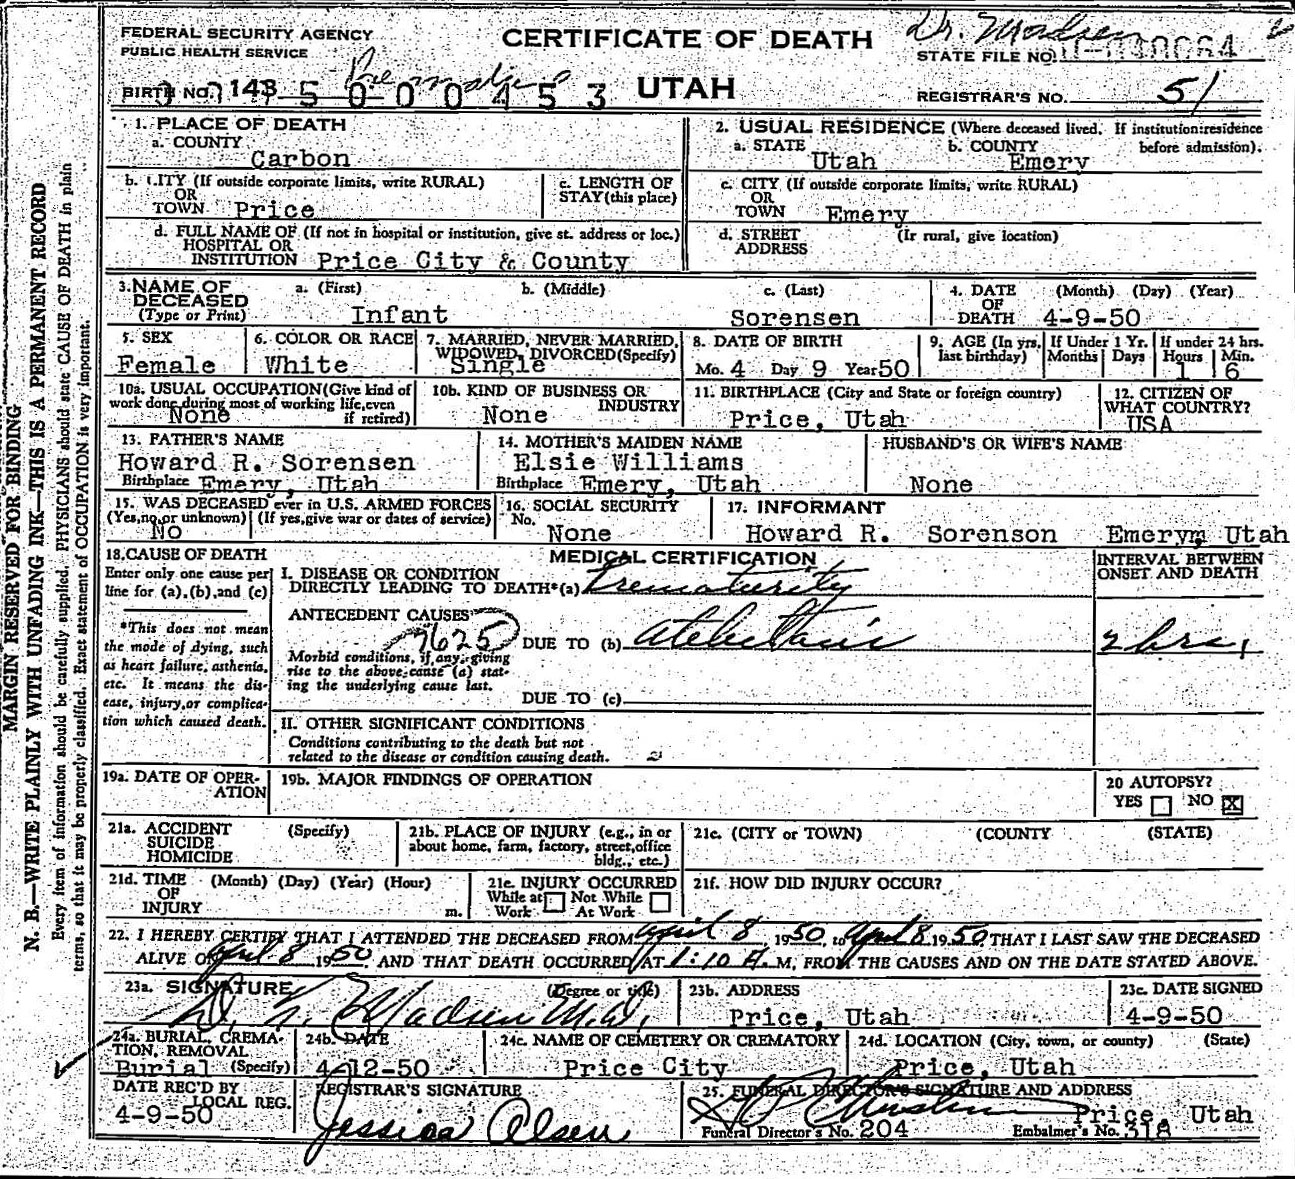 Dr. Madsen
FEDERAL SECURITY AGENCY
PUBLIC HEALTH SERVICE
CERTIFICATE OF DEATH
STATE FILE NO.
BIRTH NO. 143 50-00453
UTAH
REGISTRAR'S NO. 51
1. PLACE OF DEATH
a. COUNTY
Carbon
b. CITY (If outside corporate limits, write RURAL)
OR
TOWN Price
c. LENGTH OF
STAY (this place)
d. FULL NAME OF (If not in hospital or institution, give st. address or loc.)
HOSPITAL OR
INSTITUTION Price City & County
2. USUAL RESIDENCE (Where deceased lived. If institution:residence
before admission).
a. STATE Utah b. COUNTY Emery
c. CITY (If outside corporate limits, write RURAL)
OR
TOWN Emery
d. STREET (If rural, give location)
ADDRESS
3. NAME OF DECEASED (Type or Print)
a. (First) b. (Middle) c. (Last)
Infant Sorensen
4. DATE OF DEATH (Month) (Day) (Year)
4-9-50
5. SEX
Female
6. COLOR OR RACE
White
7. MARRIED, NEVER MARRIED,
WIDOWED, DIVORCED (Specify)
Single
8. DATE OF BIRTH
Mo. 4 Day 9 Year 50
9. AGE (In yrs. last birthday)
If Under 1 Yr. Months Days
If under 24 hrs. Hours Min.
1 6
10a. USUAL OCCUPATION (Give kind of
work done during most of working life, even
if retired)
None
10b. KIND OF BUSINESS OR
INDUSTRY
None
11. BIRTHPLACE (City and State or foreign country)
Price, Utah
12. CITIZEN OF
WHAT COUNTRY?
USA
13. FATHER'S NAME
Howard R. Sorensen
Birthplace Emery, Utah
14. MOTHER'S MAIDEN NAME
Elsie Williams
Birthplace Emery, Utah
HUSBAND'S OR WIFE'S NAME
None
15. WAS DECEASED ever in U.S. ARMED FORCES
(Yes, no, or unknown) (If yes, give war or dates of service)
No
16. SOCIAL SECURITY
No.
None
17. INFORMANT
Howard R. Sorenson Emerym Utah
18. CAUSE OF DEATH
Enter only one cause per
line for (a), (b), and (c)
*This does not mean
the mode of dying, such
as heart failure, asthenia,
etc. It means the dis-
ease, injury, or complica-
tion which caused death.
MEDICAL CERTIFICATION
INTERVAL BETWEEN
ONSET AND DEATH
I. DISEASE OR CONDITION
DIRECTLY LEADING TO DEATH*(a) Prematurity
ANTECEDENT CAUSES
7625
DUE TO (b) atelectasis 2 hrs.
Morbid conditions, if any, giving
rise to the above cause (a) stat-
ing the underlying cause last.
DUE TO (c)
II. OTHER SIGNIFICANT CONDITIONS
Conditions contributing to the death but not
related to the disease or condition causing death.
19a. DATE OF OPER-
ATION
19b. MAJOR FINDINGS OF OPERATION
20 AUTOPSY?
YES NO X
21a. ACCIDENT (Specify)
SUICIDE
HOMICIDE
21b. PLACE OF INJURY (e.g., in or
about home, farm, factory, street, office
bldg., etc.)
21c. (CITY or TOWN) (COUNTY) (STATE)
21d. TIME (Month) (Day) (Year) (Hour)
OF
INJURY m.
21e. INJURY OCCURRED
While at Work Not While At Work
21f. HOW DID INJURY OCCUR?
22. I HEREBY CERTIFY THAT I ATTENDED THE DECEASED FROM April 8 1950, to April 8 1950 THAT I LAST SAW THE DECEASED
ALIVE ON April 8 1950 AND THAT DEATH OCCURRED AT 1:10 A. M, FROM THE CAUSES AND ON THE DATE STATED ABOVE.
23a. SIGNATURE (Degree or title)
Madsen M.D.
23b. ADDRESS
Price, Utah
23c. DATE SIGNED
4-9-50
24a. BURIAL, CREMA-
TION, REMOVAL
Burial (Specify)
24b. DATE
4-12-50
24c. NAME OF CEMETERY OR CREMATORY
Price City
24d. LOCATION (City, town, or county) (State)
Price, Utah
DATE REC'D BY
LOCAL REG.
4-9-50
REGISTRAR'S SIGNATURE
Jessica Olsen
25. FUNERAL DIRECTOR'S SIGNATURE AND ADDRESS
Price, Utah
Funeral Director's No. 204 Embalmer's No. 318
MARGIN RESERVED FOR BINDING
N. B.—WRITE PLAINLY WITH UNFADING INK—THIS IS A PERMANENT RECORD
Every item of information should be carefully supplied. PHYSICIANS should state CAUSE OF DEATH in plain
terms, so that it may be properly classified. Exact statement of OCCUPATION is very important.